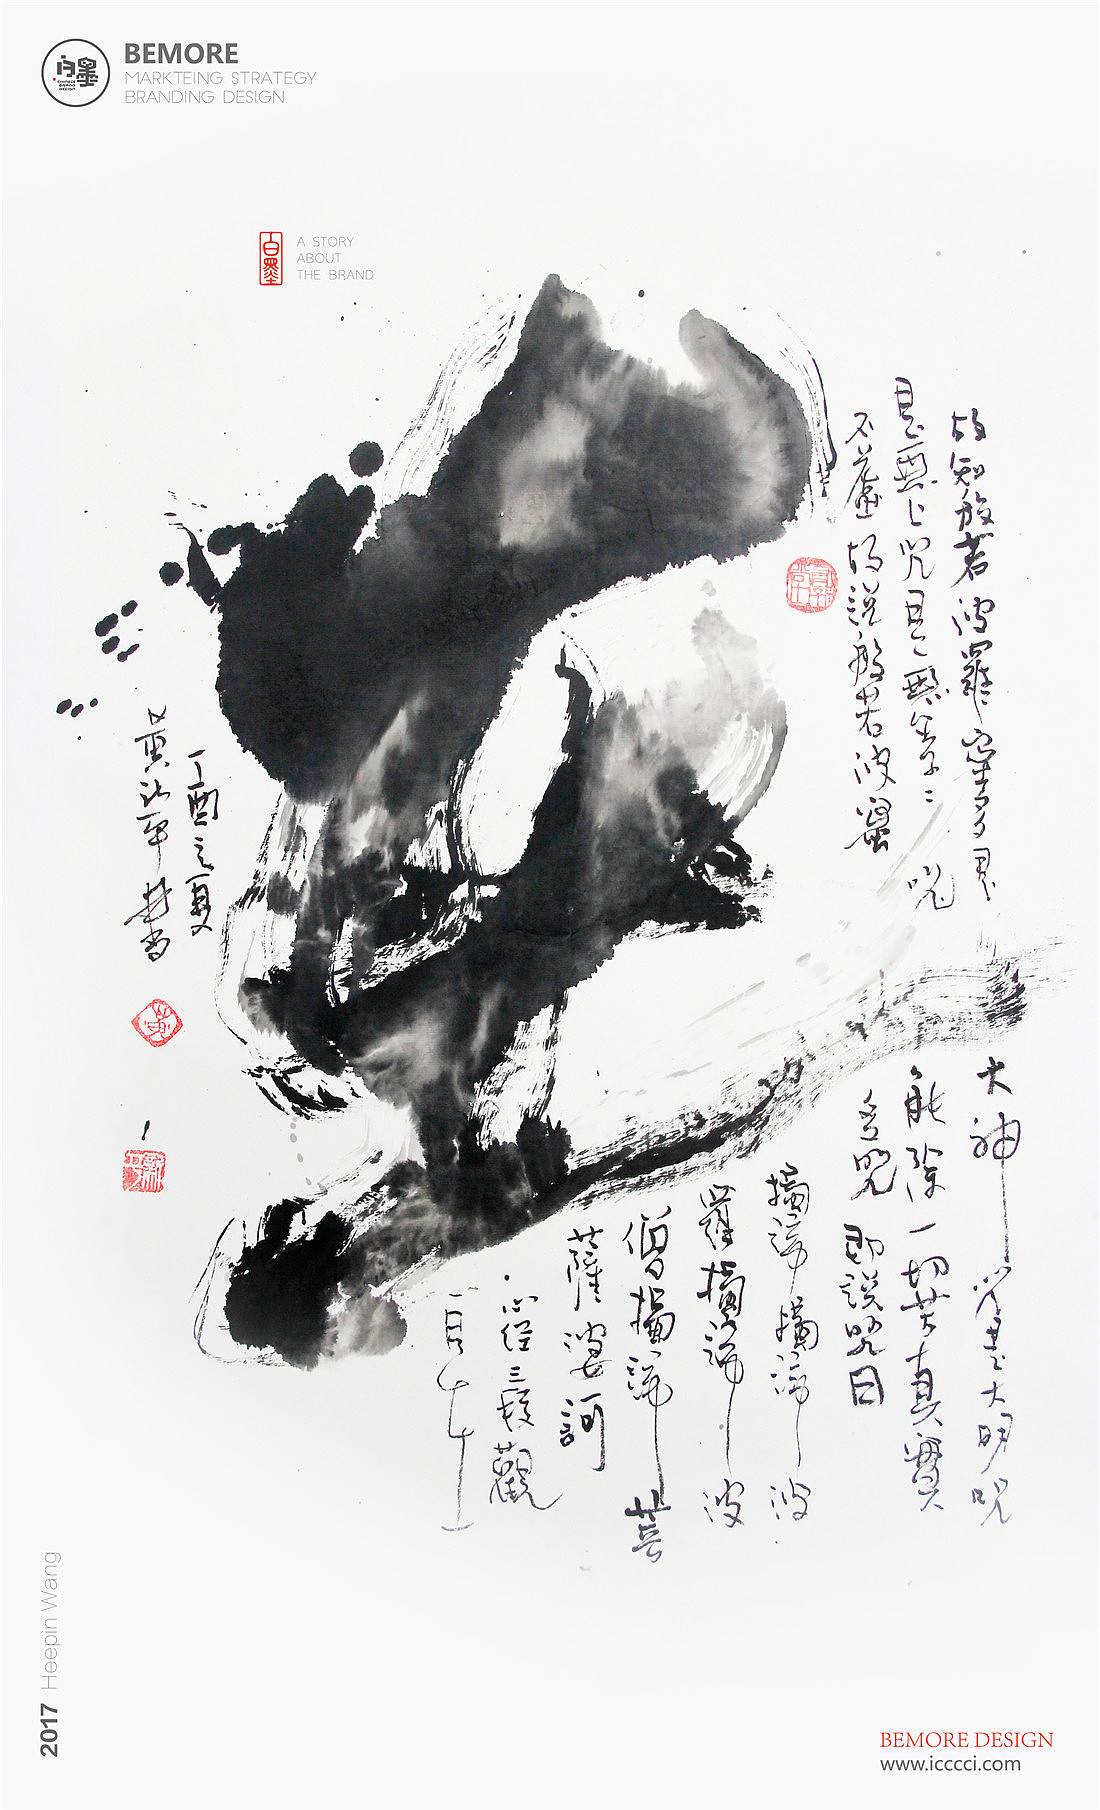 BEMORE
MARKTEING STRATEGY
BRANDING DESIGN
白墨
A STORY
ABOUT
THE BRAND
故知般若波羅蜜多是
大神咒是大明咒
是無上咒是無等等咒
能除一切苦真實
不虛故說般若波蜜
多咒即說咒曰
揭諦揭諦波
羅揭諦波
僧揭諦菩
薩婆訶
心経三段觀
丁酉之夏
2017 Heepin Wang
BEMORE DESIGN
www.icccci.com